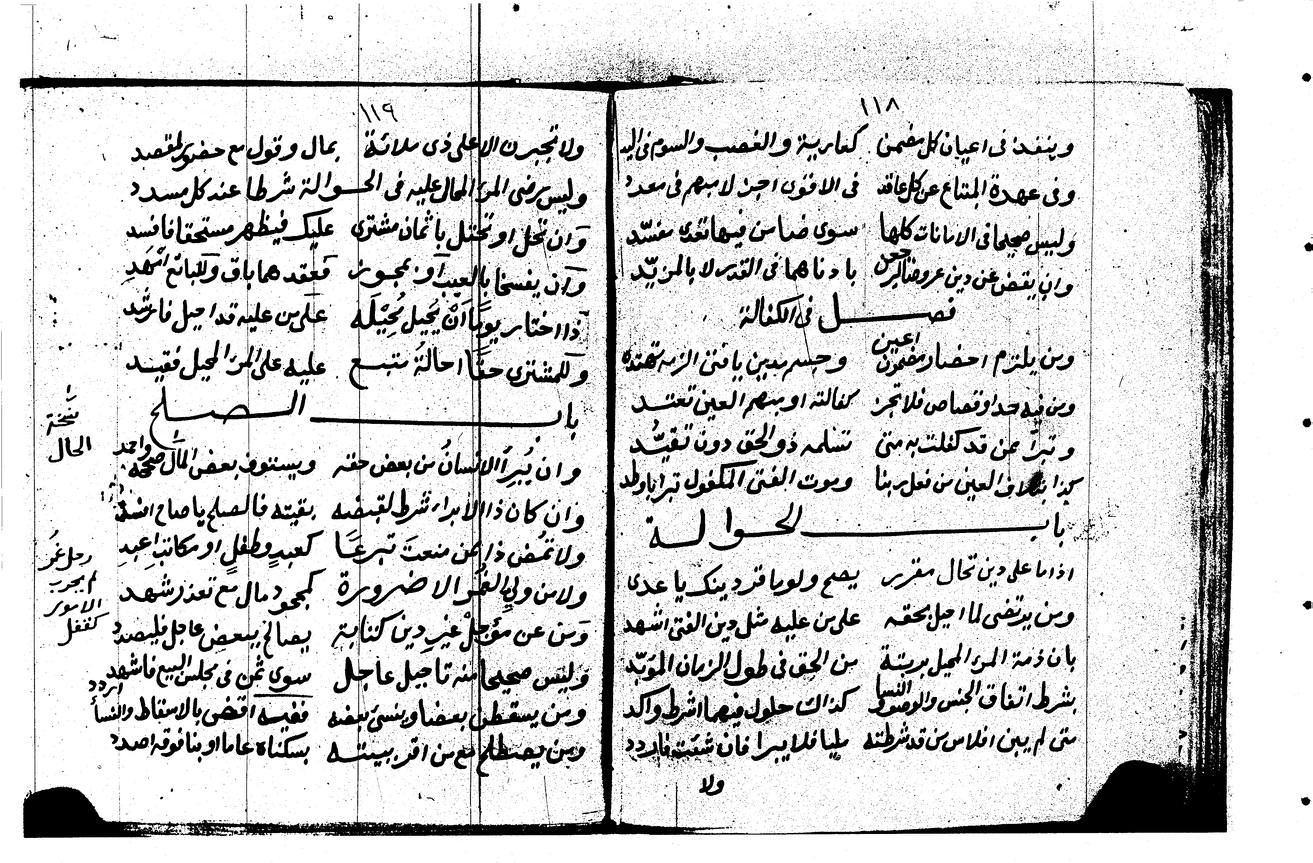 ١١٨
وينفذ في اعيان كل مضمن كعارية والغصب والسوم في اليد
وفي عهدة المبتاع عن كل عاقد في الاقوى اجز لا مبهم في معدد
وليس صحيحا في الامانات كلها سوى ضامن فيها تعدي مفسد
وان يقض عن دين عروضا ليرجعن بادناهما في القدر لا بالمزيد
فصل في الكفالة
ومن يلتزم احضار مضمون اعين وجسم مدين يا فتى الزمه تهتدي
ومن فيه حد او قصاص فلا تجز كفالته او مبهم العين تعتد
وتبرا بمن قد كفلت به متى تسلمه ذو الحق دون تقيد
كذا بتلاف العين من فعل ربنا وموت الفتى المكفول تبرا باوطد
باب الحوالة
اذا ما على دين تحال مقرر يصح ولو ما قر دينك يا عدي
ومن يرتضى لما احيل بحقه على من عليه مثل دين الفتى اشهد
بان ذمة المرء المحيل بريئة من الحق في طول الزمان المؤبد
بشرط اتفاق الجنس والوصف والنسا كذاك حلول فيهما اشرط واكد
متى لم يبن افلاس من قد شرطته مليا فلا يبرا فان شئت فاردد
ولا
١١٩
ولا تجبرن الا على ذي ملائة بمال وقول مع حضور لمقصد
وليس رضى المرء المحال عليه في الحوالة شرطا عند كل مسدد
وان تحل او تحتل باثمان مشتري عليك فيظهر مستحقا فافسد
وان يفسخا بالعيب او بمجوز فعقدهما باق وللبائع اشهد
اذا اختار يوما ان يحيل محيله على من عليه قد احيل فارشد
وللمشتري حقا احالة متبع عليه على المرء المحيل فقيد
باب الصلح
وان يبرأ الانسان من بعض حقه ويستوف بعض المال صححه واحمد
وان كان ذا الابراء شرط لقبضه بقيته فالصلح يا صاح افسد
ولا تمض ذا ممن منعت تبرعا كعبد وطفل او مكاتب اعبد
ولا من ولي الغمر الا ضرورة كمجحود مال مع تعذر شهد
ومن عن مؤجل غير دين كتابة يصالح ببعض عاجل فليصدد
وليس صحيحا منه تاجيل عاجل سوى ثمن في مجلس البيع فاشهد
ومن يسقطن بعضا وينسئ بعضه ففيه اقض بالاسقاط والنسأ اردد
ومن يصطلح مع من اقر ببيته بسكناه عاما او بنا فوقه اصدد
نسخة
الحال
رجل غمر
لم يجرب
الامور
كقفل